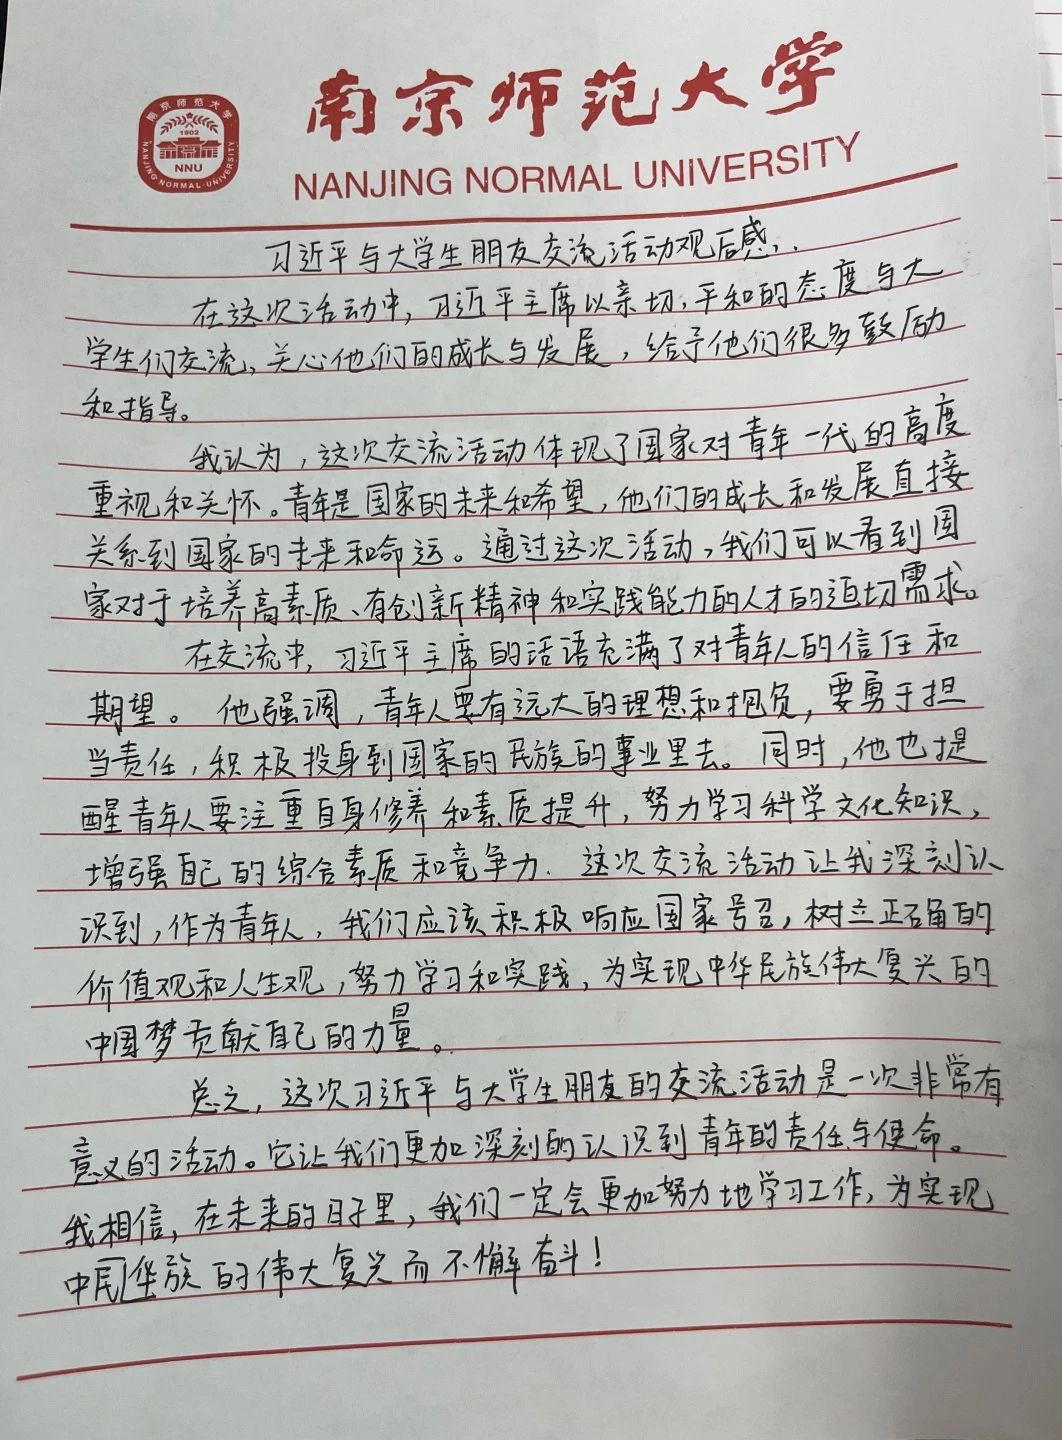 南京师范大学
NANJING NORMAL UNIVERSITY
南京师范大学
1902
NNU
NANJING·NORMAL·UNIVERSITY
习近平与大学生朋友交流活动观后感..
在这次活动中，习近平主席以亲切、平和的态度与大
学生们交流、关心他们的成长与发展，给予他们很多鼓励
和指导。
我认为，这次交流活动体现了国家对青年一代的高度
重视和关怀。青年是国家的未来和希望，他们的成长和发展直接
关系到国家的未来和命运。通过这次活动，我们可以看到国
家对于培养高素质、有创新精神和实践能力的人才的迫切需求。
在交流中，习近平主席的话语充满了对青年人的信任和
期望。他强调，青年人要有远大的理想和抱负，要勇于担
当责任，积极投身到国家的民族的事业里去。同时，他也提
醒青年人要注重自身修养和素质提升，努力学习科学文化知识，
增强自己的综合素质和竞争力．这次交流活动让我深刻认
识到，作为青年人，我们应该积极响应国家号召，树立正确的
价值观和人生观，努力学习和实践，为实现中华民族伟大复兴的
中国梦贡献自己的力量。
总之，这次习近平与大学生朋友的交流活动是一次非常有
意义的活动。它让我们更加深刻的认识到青年的责任与使命。
我相信，在未来的日子里，我们一定会更加努力地学习工作，为实现
中民华族的伟大复兴而不懈奋斗！